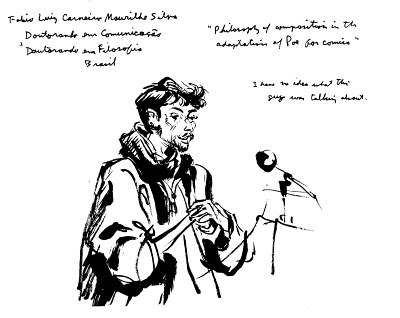 Fabio Luiz Carneiro Mourilho Silva
Doutorando em Comunicação
Doutorando em Filosofia
Brasil
"Philosophy of composition in the
adaptation of Poe for comics"
I have no idea what this
guy was talking about.